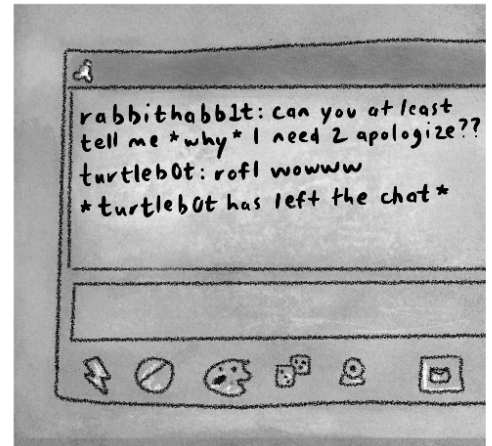 rabbithabb1t: can you at least
tell me *why* I need 2 apologize??
turtleb0t: rofl wowww
*turtleb0t has left the chat*